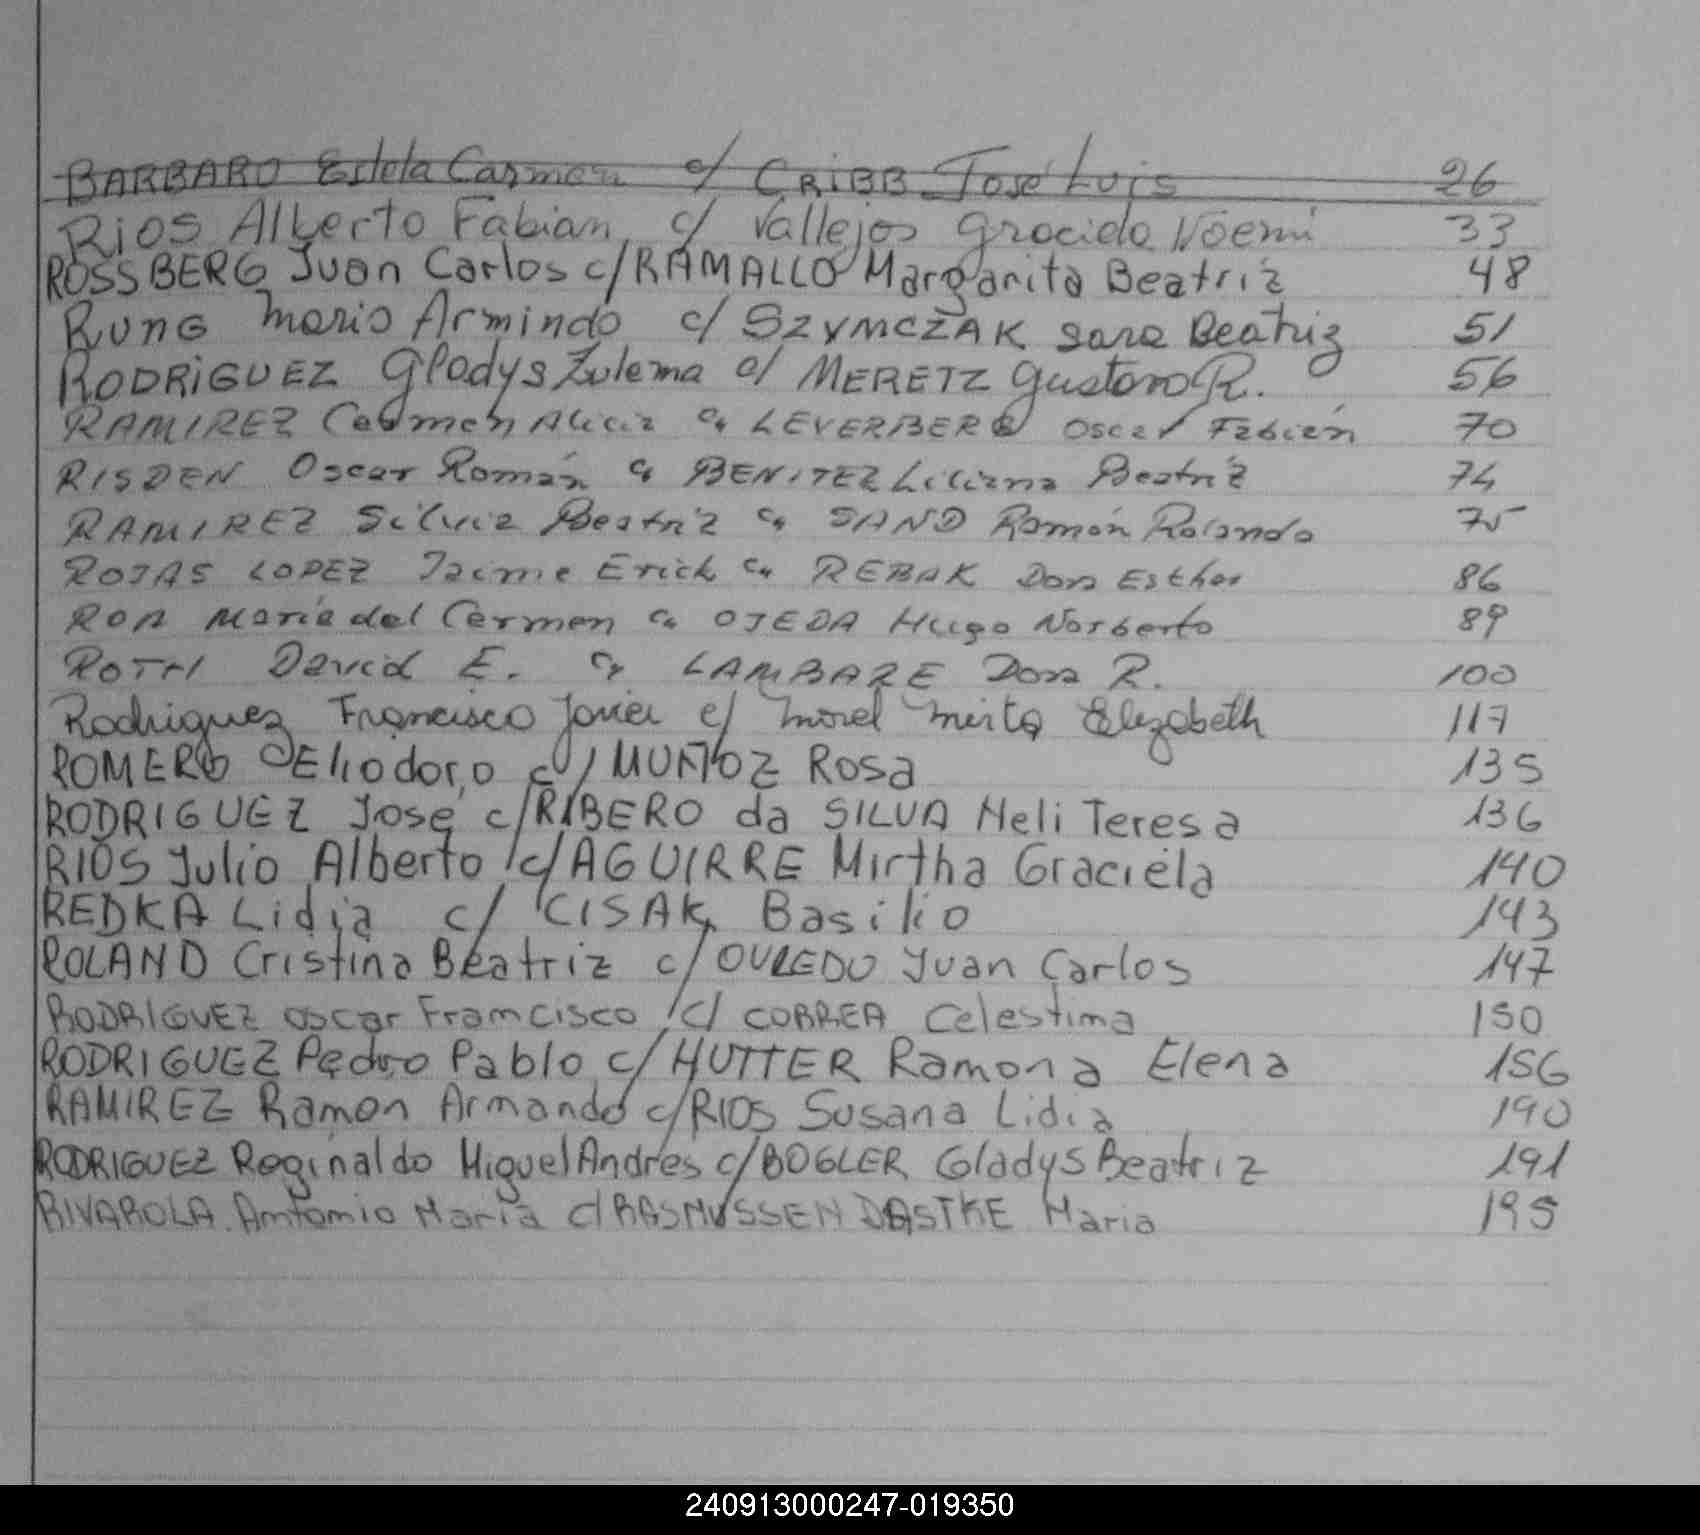 BARBARO Estela Carmen c/ CRIBB José Luis 26
Rios Alberto Fabian c/ Vallejos Graciela Noemi 33
ROSSBERG Juan Carlos c/ RAMALLO Margarita Beatriz 48
RUNG Mario Armindo c/ SZYMCZAK Sara Beatriz 51
RODRIGUEZ Gladys Zulema c/ MERETZ Gustavo R. 56
RAMIREZ Carmen Alicia c/ LEVERBERG Oscar Fabián 70
RISDEN Oscar Román c/ BENITEZ Liliana Beatriz 74
RAMIREZ Silvia Beatriz c/ SAND Ramón Rolando 75
ROJAS LOPEZ Jaime Erick c/ REBAK Dora Esther 86
RON Maria del Carmen c/ OJEDA Hugo Norberto 89
ROTH David E. c/ LAMBARE Dora R. 100
Rodriguez Francisco Javier c/ Morel Mirta Elizabeth 117
ROMERO Eliodoro c/ MUÑOZ Rosa 135
RODRIGUEZ José c/ RIBERO da SILVA Neli Teresa 136
RIOS Julio Alberto c/ AGUIRRE Mirtha Graciela 140
REDKA Lidia c/ CISAK Basilio 143
ROLAND Cristina Beatriz c/ OVLEDO Juan Carlos 147
RODRIGUEZ Oscar Francisco c/ CORREA Celestina 150
RODRIGUEZ Pedro Pablo c/ HUTTER Ramona Elena 156
RAMIREZ Ramon Armando c/ RIOS Susana Lidia 190
RODRIGUEZ Reginaldo Miguel Andres c/ BOGLER Gladys Beatriz 191
RIVAROLA Antonio Maria c/ RASMUSSEN DASTKE Maria 195
240913000247-019350